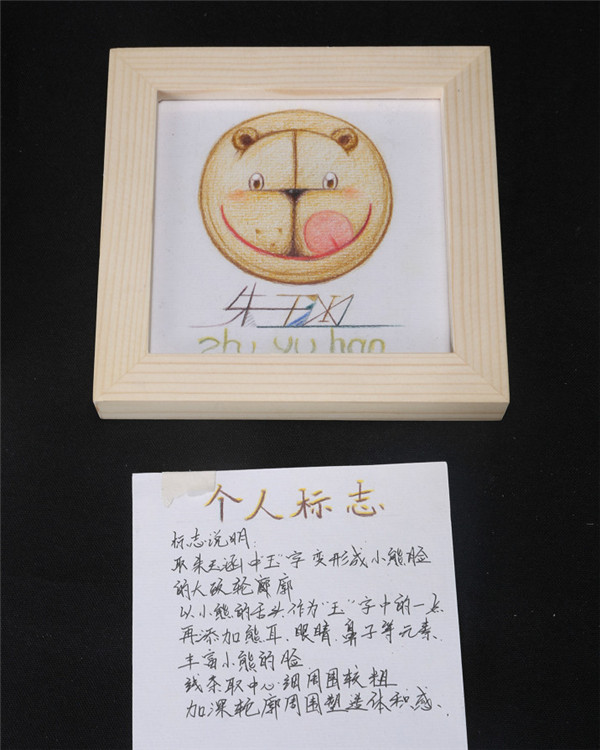 zhu yu han
个人标志
标志说明:
取朱玉涵中"玉"字变形成小熊脸
的大致轮廓廓
以小熊的舌头作为"玉"字中的一点
再添加熊耳、眼睛、鼻子等元素、
丰富小熊的脸
线条取中心细周围较粗
加深轮廓周围塑造体积感、